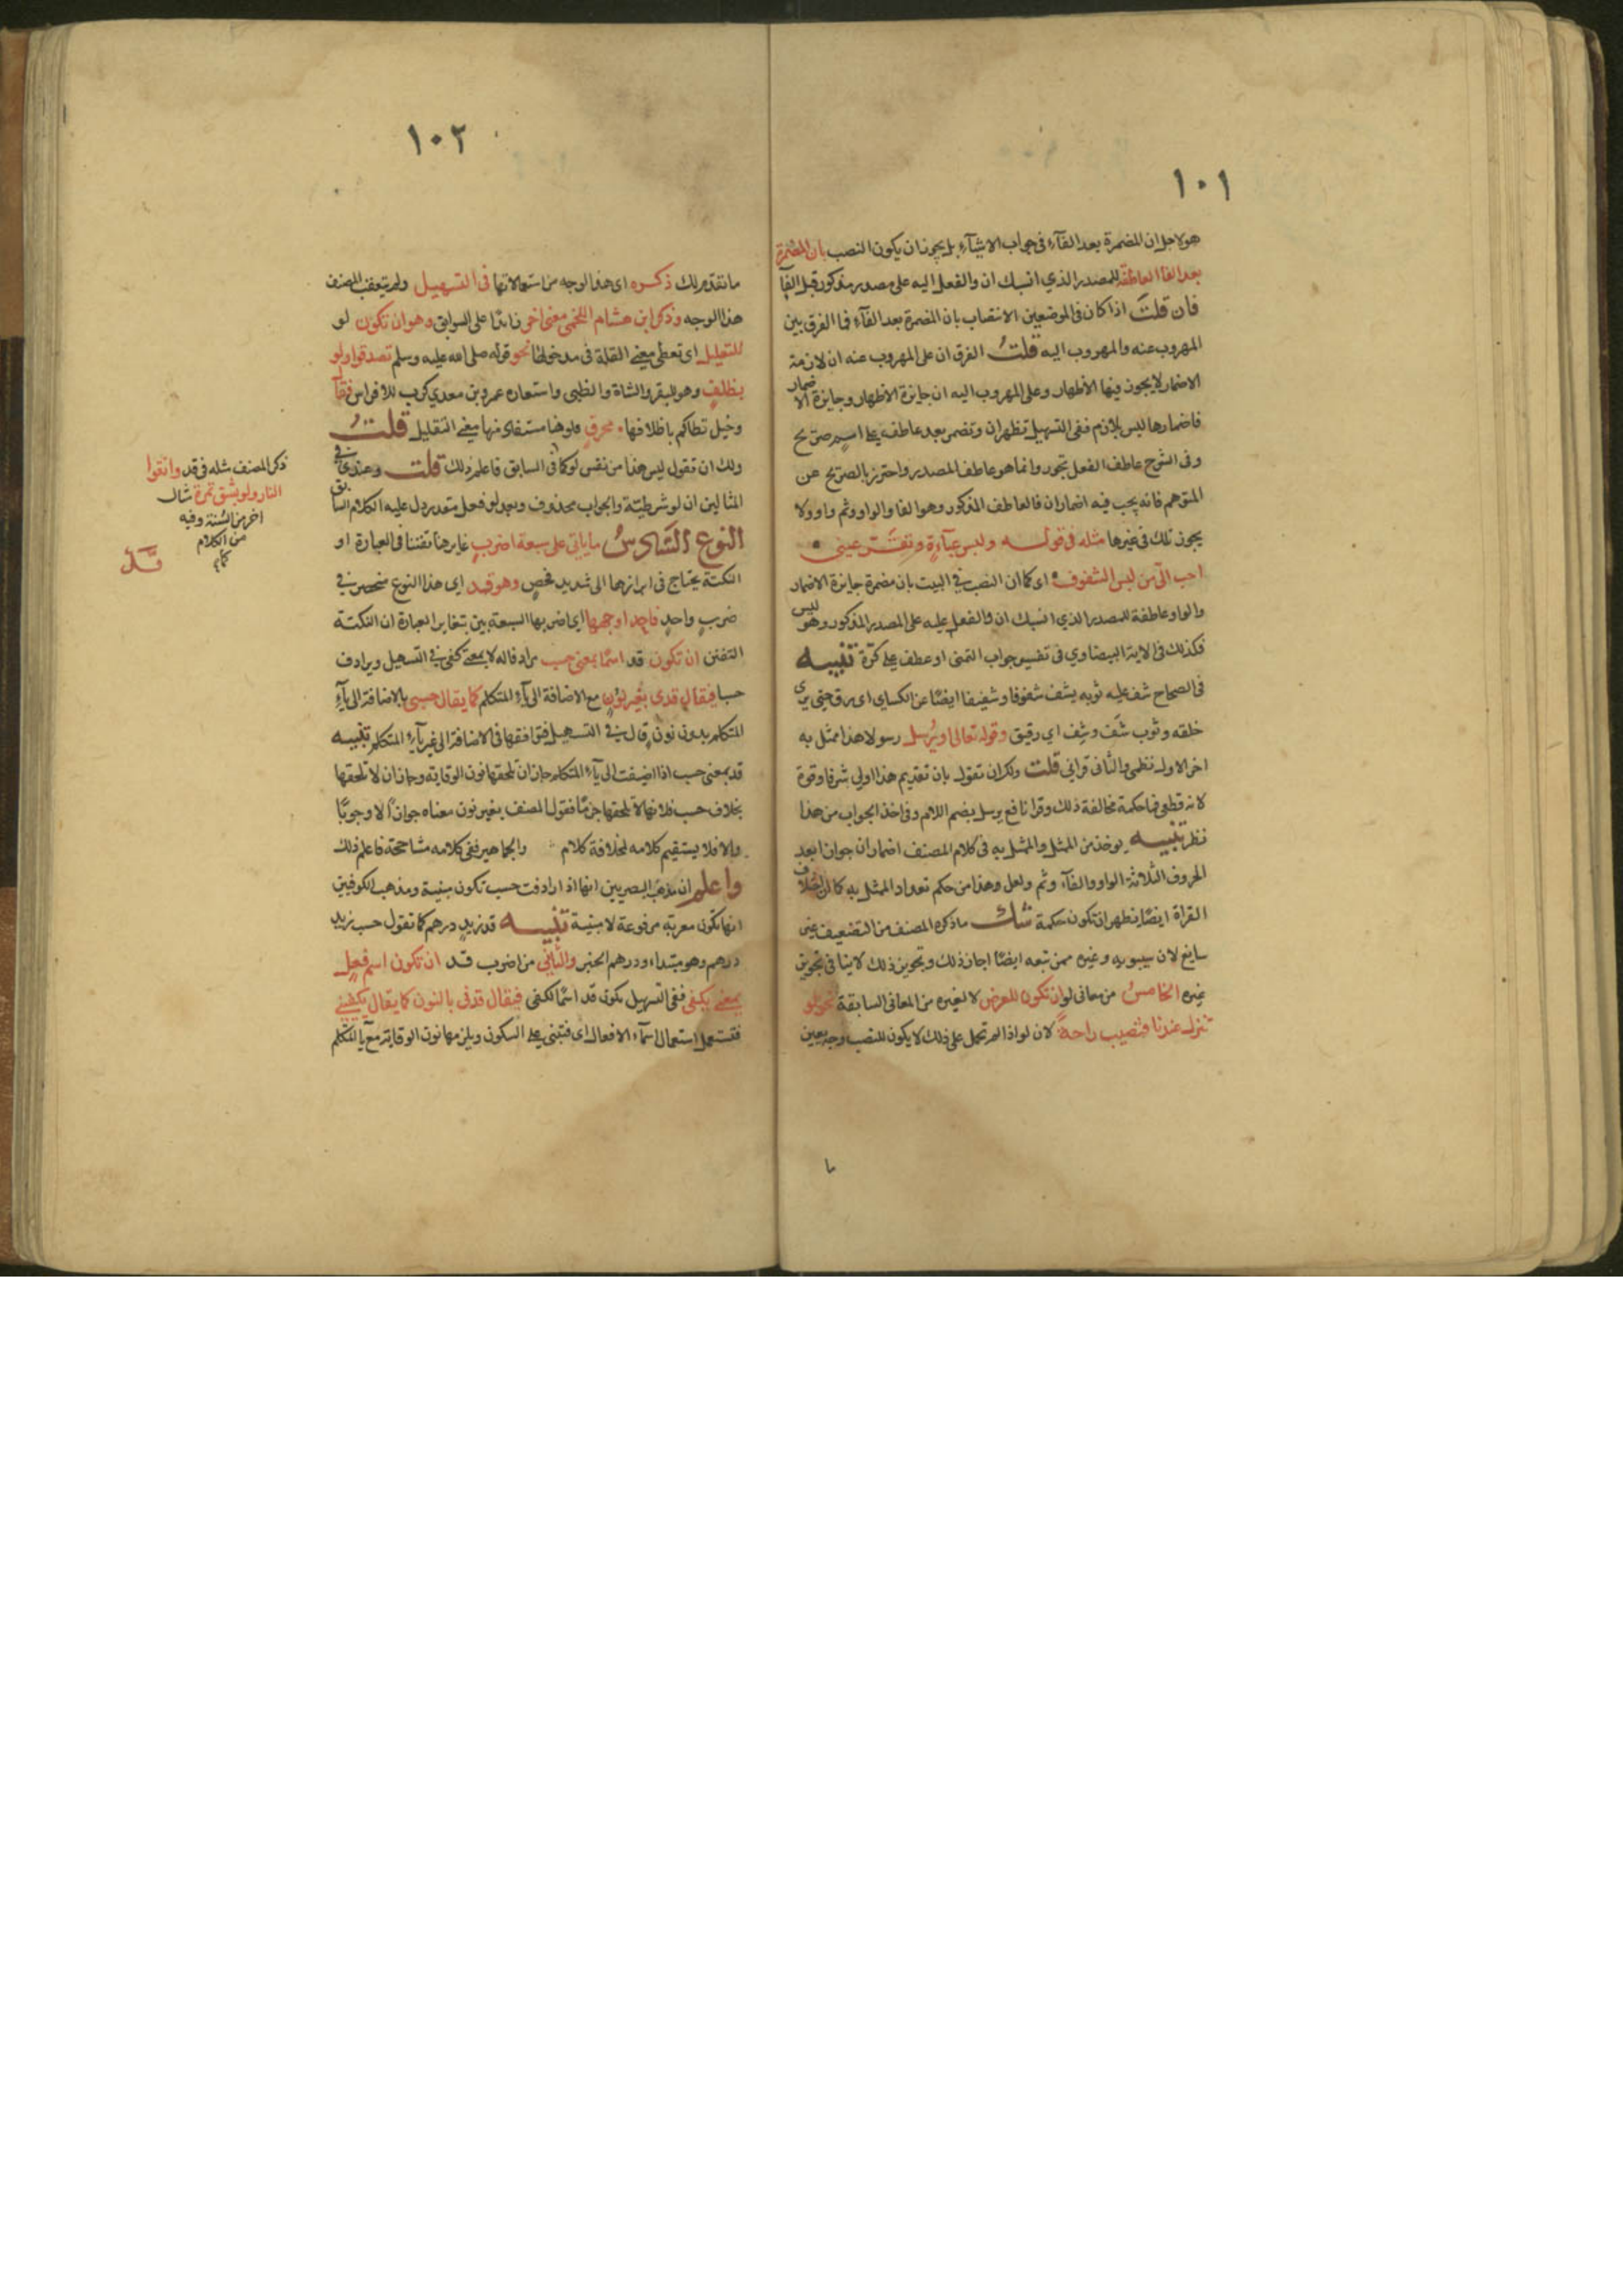 ١٠١
هو لاجل ان المضمرة بعد الفآء في جواب الاشيآء بل يجوز ان يكون النصب بان المضمرة
بعد الفا العاطفة للمصدر الذي انسبك ان والفعل اليه على مصدر مذكور قبل الفآ
فان قلتَ اذا كان في الموضعين الانتصاب بان المضمرة بعد الفآء فما الفرق بين
المهروب عنه والمهروب اليه قلتُ الفرق ان على المهروب عنه ان لازمة
الاضمار لا يجوز فيها الاظهار وعلى المهروب اليه ان جايزة الاظهار وجايزة الاضمار
فاضمارها ليس بلازم ففي التسهيل تظهر ان وتضمر بعد عاطف على اسم صريح
وفي الشرح عاطف الفعل تجوز وانما هو عاطف المصدر واحترز بالصريح عن
المتوهم فانه يجب فيه اضمار ان فالعاطف المذكور وهو الفا والواو وثم واو ولا
يجوز تلك في غيرها مثله في قوله ولبس عبآءةٍ وتقرّ عيني
احب الّي من لبس الشفوف اي كما ان النصب في البيت بان مضمرة جايزة الاضمار
والواو عاطفة للمصدر الذي انسبك ان والفعل عليه على المصدر المذكور وهو لبس
فكذلك في الاية البيضاوي في تفسير جواب التمني او عطف على كرّة تنبيه
في الصحاح شف عليه ثوبه يشف شفوفا وشفيفا ايضًا عن الكساي اي رق حتى يرى
خلقه وثوب شَف وشِف اي رقيق وقوله تعالى او يُرسل رسولا هذا ممثل به
اخر الاول نظمي والثاني قراني قلت ولك ان تقول بان تقديم هذا اولى شرفا وقوة
لانه قطعي فما حكمة مخالفة ذلك وقرا نافع يرسل بضم اللام وفي اخذ الجواب من هذا
نظر تنبيه يوخذ من الممثل والممثل به في كلام المصنف اضمار ان جوازا بعد
الحروف الثلاثة الواو والفآء وثم ولعل وهذا من حكم تعداد الممثل به كما ان اختلاف
القراة ايضًا يظهر ان تكون حكمة شك ما ذكره المصنف من التضعيف غير
سايغ لان سيبويه وغيره ممن تبعه ايضًا اجاز ذلك وتجويز ذلك لا ينافي تجويز
غيره الخامسُ من معاني لو ان تكون للعرض لا لغيره من المعاني السابقة نحو لو
تنزل عندنا فتصيب راحةً لان لو اذا لم تحمل على ذلك لا يكون للنصب وجه يعين
١٠٢
ما تقدم لك ذكره اي هذا الوجه من استعمالاتها في التسهيل ولم يتعقب المصنف
هذا الوجه وذكر ابن هشام اللخمي معنى اخر زائدًا على السوابق وهو ان تكون لو
للتقليل اي تعطي معنى القلة في مدخولها نحو قوله صلى الله عليه وسلم تصدقوا ولو
بظلف وهو للبقر والشاة والظبي واستعاره عمرو بن معدي كرب للافراس فقال
وخيل تطاكم باظلافها محرق فلو هنا مستفاد منها معنى التقليل قلتُ
ولك ان تقول ليس هذا من نفس لو كما في السابق فاعلم ذلك قلت وعندي في
المثالين ان لو شرطيّة والجواب محذوف وبعد لو فعل مقدر دل عليه الكلام السابق
النوع السّادسُ ما ياتي على سبعة اضربٍ غاير هنا تفننا في العبارة او
النكتة يحتاج في ابرازها الى شديد فحص وهو قد اي هذا النوع منحصر في
ضربٍ واحدٍ فاحد اوجهها اي اضربها السبعة بين بتغاير العبارة ان النكتة
التفنن ان تكون قد اسمًا بمعنى حسب مراد قاله لا بمعنى كفى في التسهيل ويرادف
حسبا فيقال قدي بغير نونٍ مع الاضافة الى يآء المتكلم كما يقال حسبي بالاضافة الى يآء
المتكلم بدون نون قال في التسهيل فتوافقها في الاضافة الى غير يآء المتكلم تنبيه
قد بمعنى حسب اذا اضيفت الى يآء المتكلم جاز ان تلحقها نون الوقاية وجاز ان لا تلحقها
بخلاف حسب فلانها لا تلحقها جزمًا فقول المصنف بغير نون معناه جوازًا لا وجوبًا
والا فلا يستقيم كلامه لمخالفة كلام والجماهير ففي كلامه مشاححة فاعلم ذلك
واعلم ان مذهب البصريين انها اذا رادفت حسب تكون مبنية ومذهب الكوفيين
انها تكون معربة مرفوعة لا مبنية تنبيه قد زيدٍ درهم كما تقول حسب زيد
درهم وهو مبتداء ودرهم الخبر والثّاني من اضرب قد ان تكون اسم فعلٍ
بمعنى يكفي ففي التسهيل تكون قد اسمًا لكفى فيقال قدني بالنون كما يقال يكفيني
فتستعمل استعمال اسمآء الافعال اي فتبنى على السكون ويلزمها نون الوقاية مع يآ المتكلم
ذكر المصنف مثله في قد واتقوا
النار ولو بشق تمرة مثال
اخر من السّنة وفيه
من الكلام